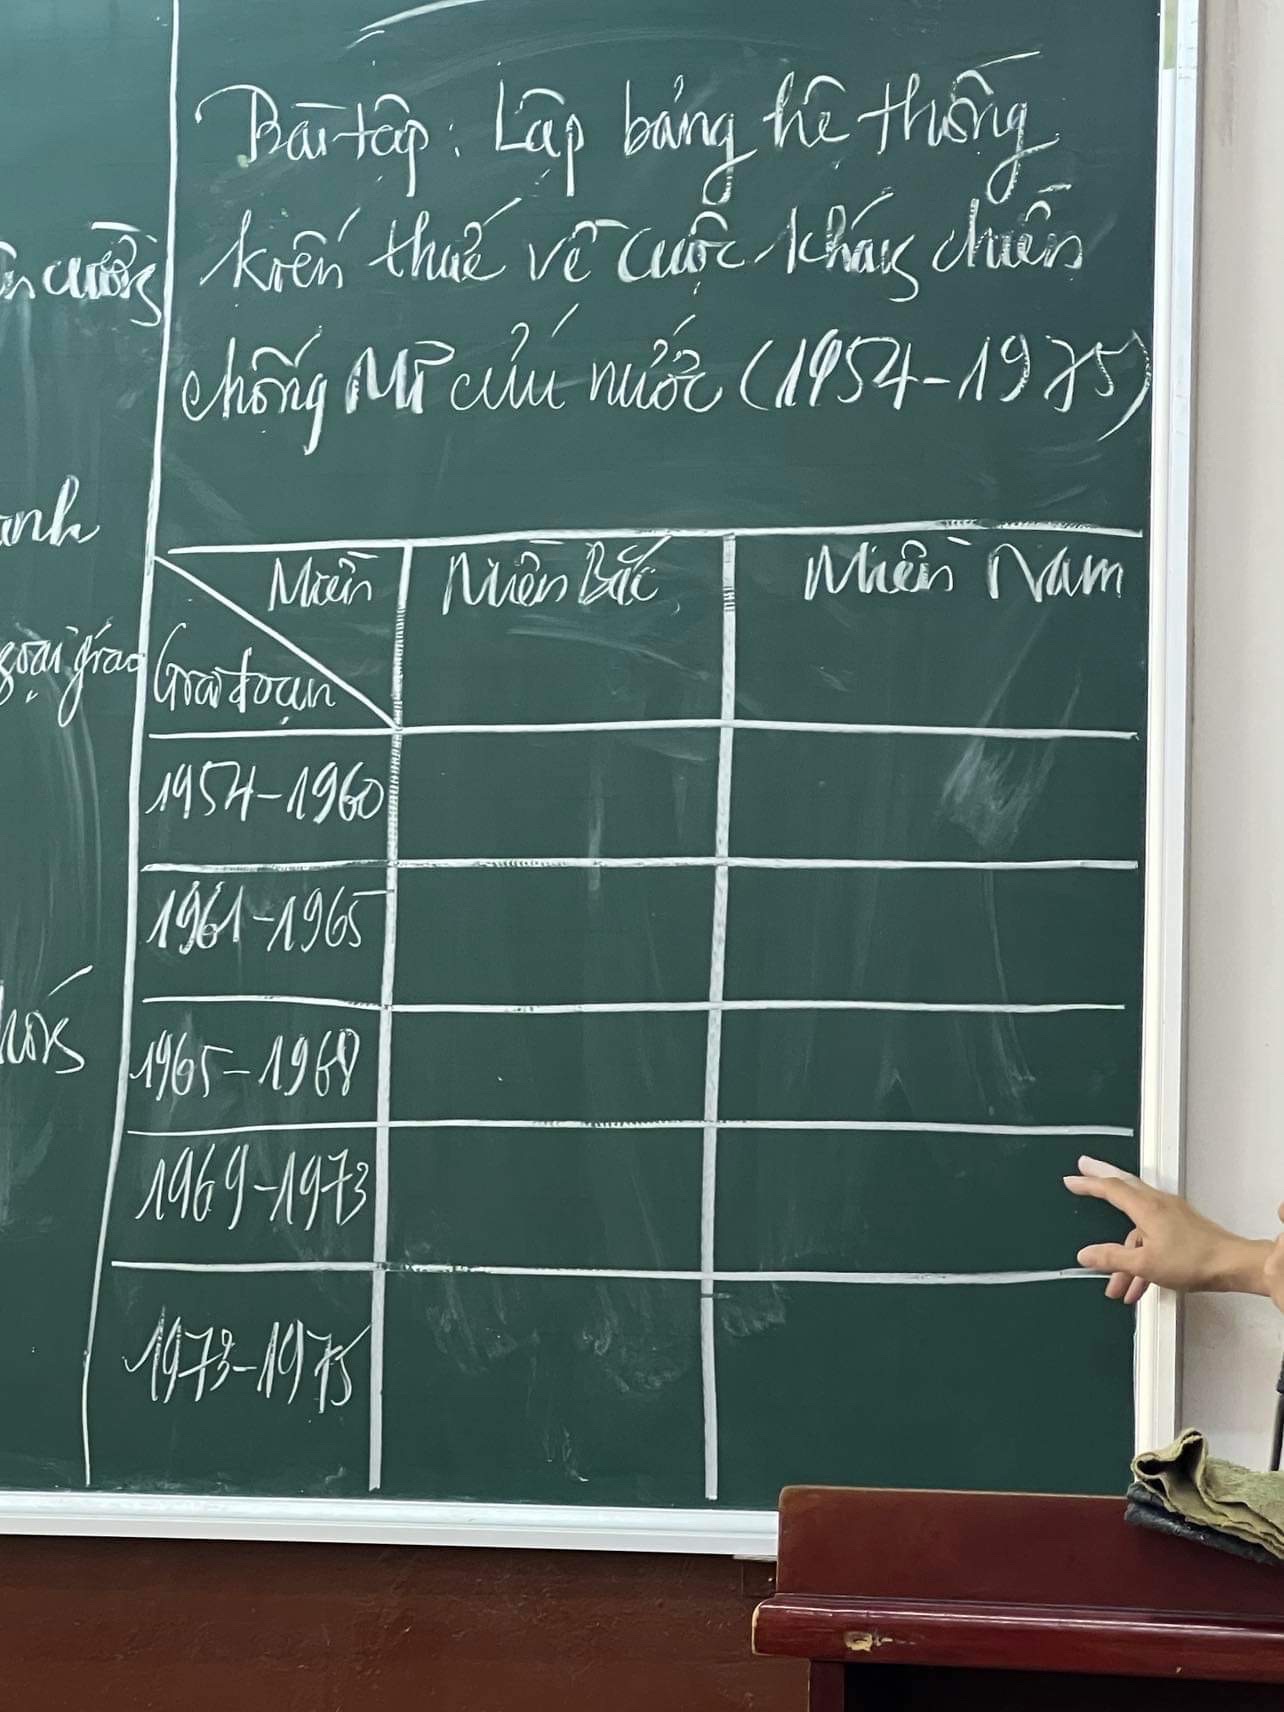 ường
anh
goại giao
Bài tập: Lập bảng hệ thống
kiến thức về cuộc kháng chiến
chống Mĩ cứu nước (1954-1975)
Miền
Miền Bắc
Miền Nam
Giai đoạn
1954-1960
1961-1965
1965-1968
1969-1973
1973-1975